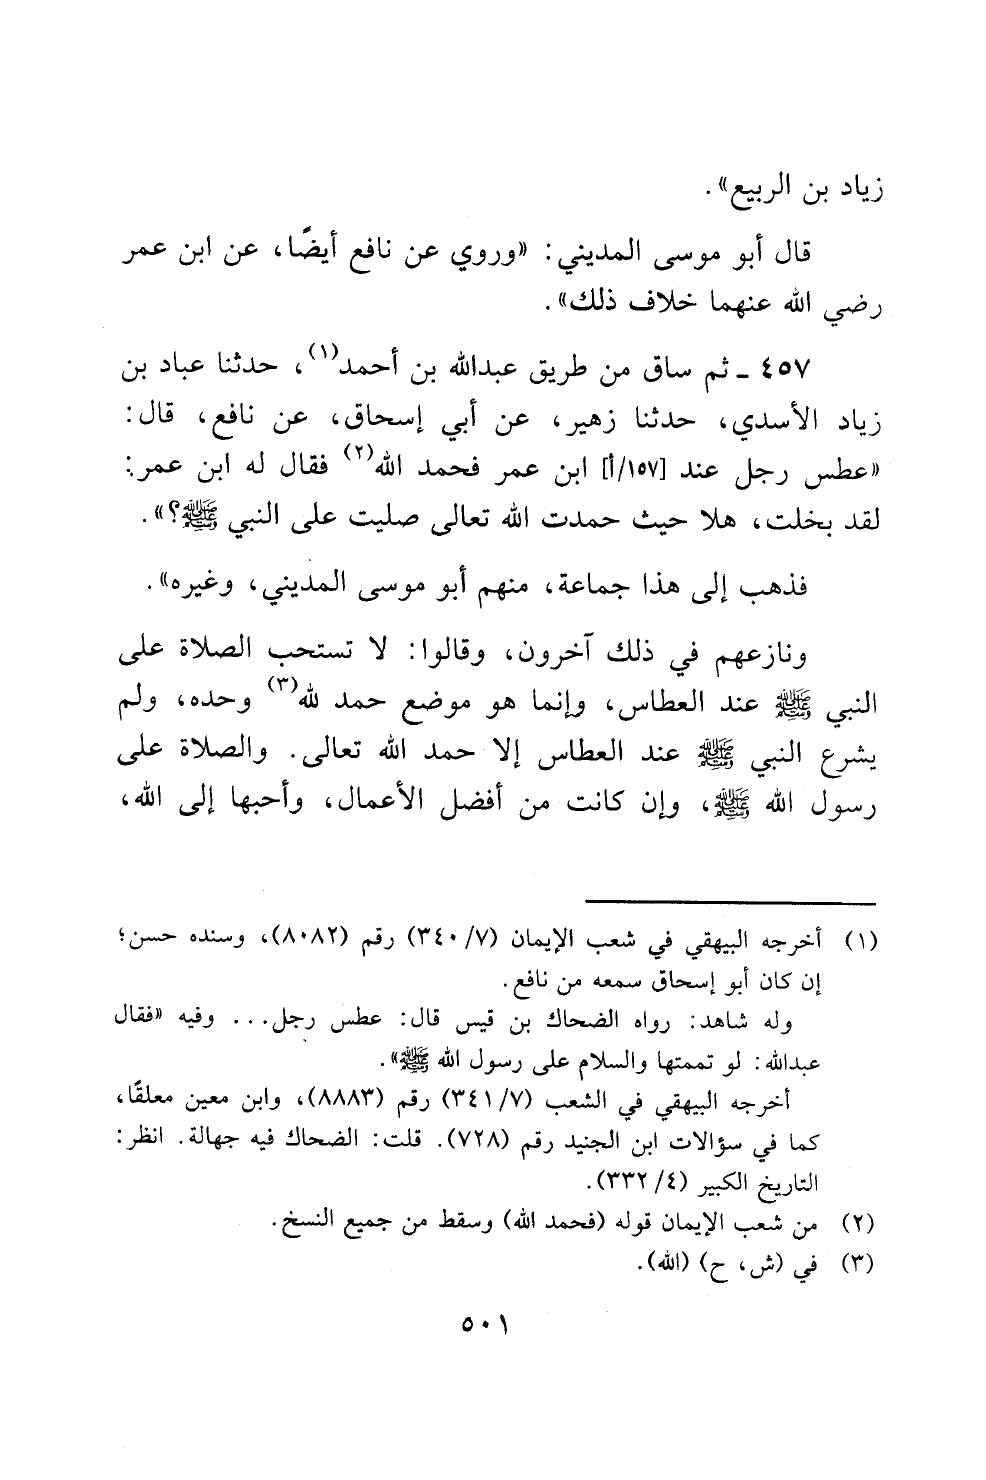 زياد بن الربيع».
قال أبو موسى المديني: «وروي عن نافع أيضًا، عن ابن عمر
رضي الله عنهما خلاف ذلك».
٤٥٧ ـ ثم ساق من طريق عبدالله بن أحمد(١)، حدثنا عباد بن
زياد الأسدي، حدثنا زهير، عن أبي إسحاق، عن نافع، قال:
«عطس رجل عند [١٥٧/أ] ابن عمر فحمد الله(٢) فقال له ابن عمر:
لقد بخلت، هلا حيث حمدت الله تعالى صليت على النبي ﷺ؟».
فذهب إلى هذا جماعة، منهم أبو موسى المديني، وغيره».
ونازعهم في ذلك آخرون، وقالوا: لا تستحب الصلاة على
النبي ﷺ عند العطاس، وإنما هو موضع حمد لله(٣) وحده، ولم
يشرع النبي ﷺ عند العطاس إلا حمد الله تعالى. والصلاة على
رسول الله ﷺ، وإن كانت من أفضل الأعمال، وأحبها إلى الله،
(١) أخرجه البيهقي في شعب الإيمان (٧/ ٣٤٠) رقم (٨٠٨٢)، وسنده حسن؛
إن كان أبو إسحاق سمعه من نافع.
وله شاهد: رواه الضحاك بن قيس قال: عطس رجل... وفيه «فقال
عبدالله: لو تممتها والسلام على رسول الله ﷺ».
أخرجه البيهقي في الشعب (٧/ ٣٤١) رقم (٨٨٨٣)، وابن معين معلقًا،
كما في سؤالات ابن الجنيد رقم (٧٢٨). قلت: الضحاك فيه جهالة. انظر:
التاريخ الكبير (٤/ ٣٣٢).
(٢) من شعب الإيمان قوله (فحمد الله) وسقط من جميع النسخ.
(٣) في (ش، ح) (الله).
٥٠١